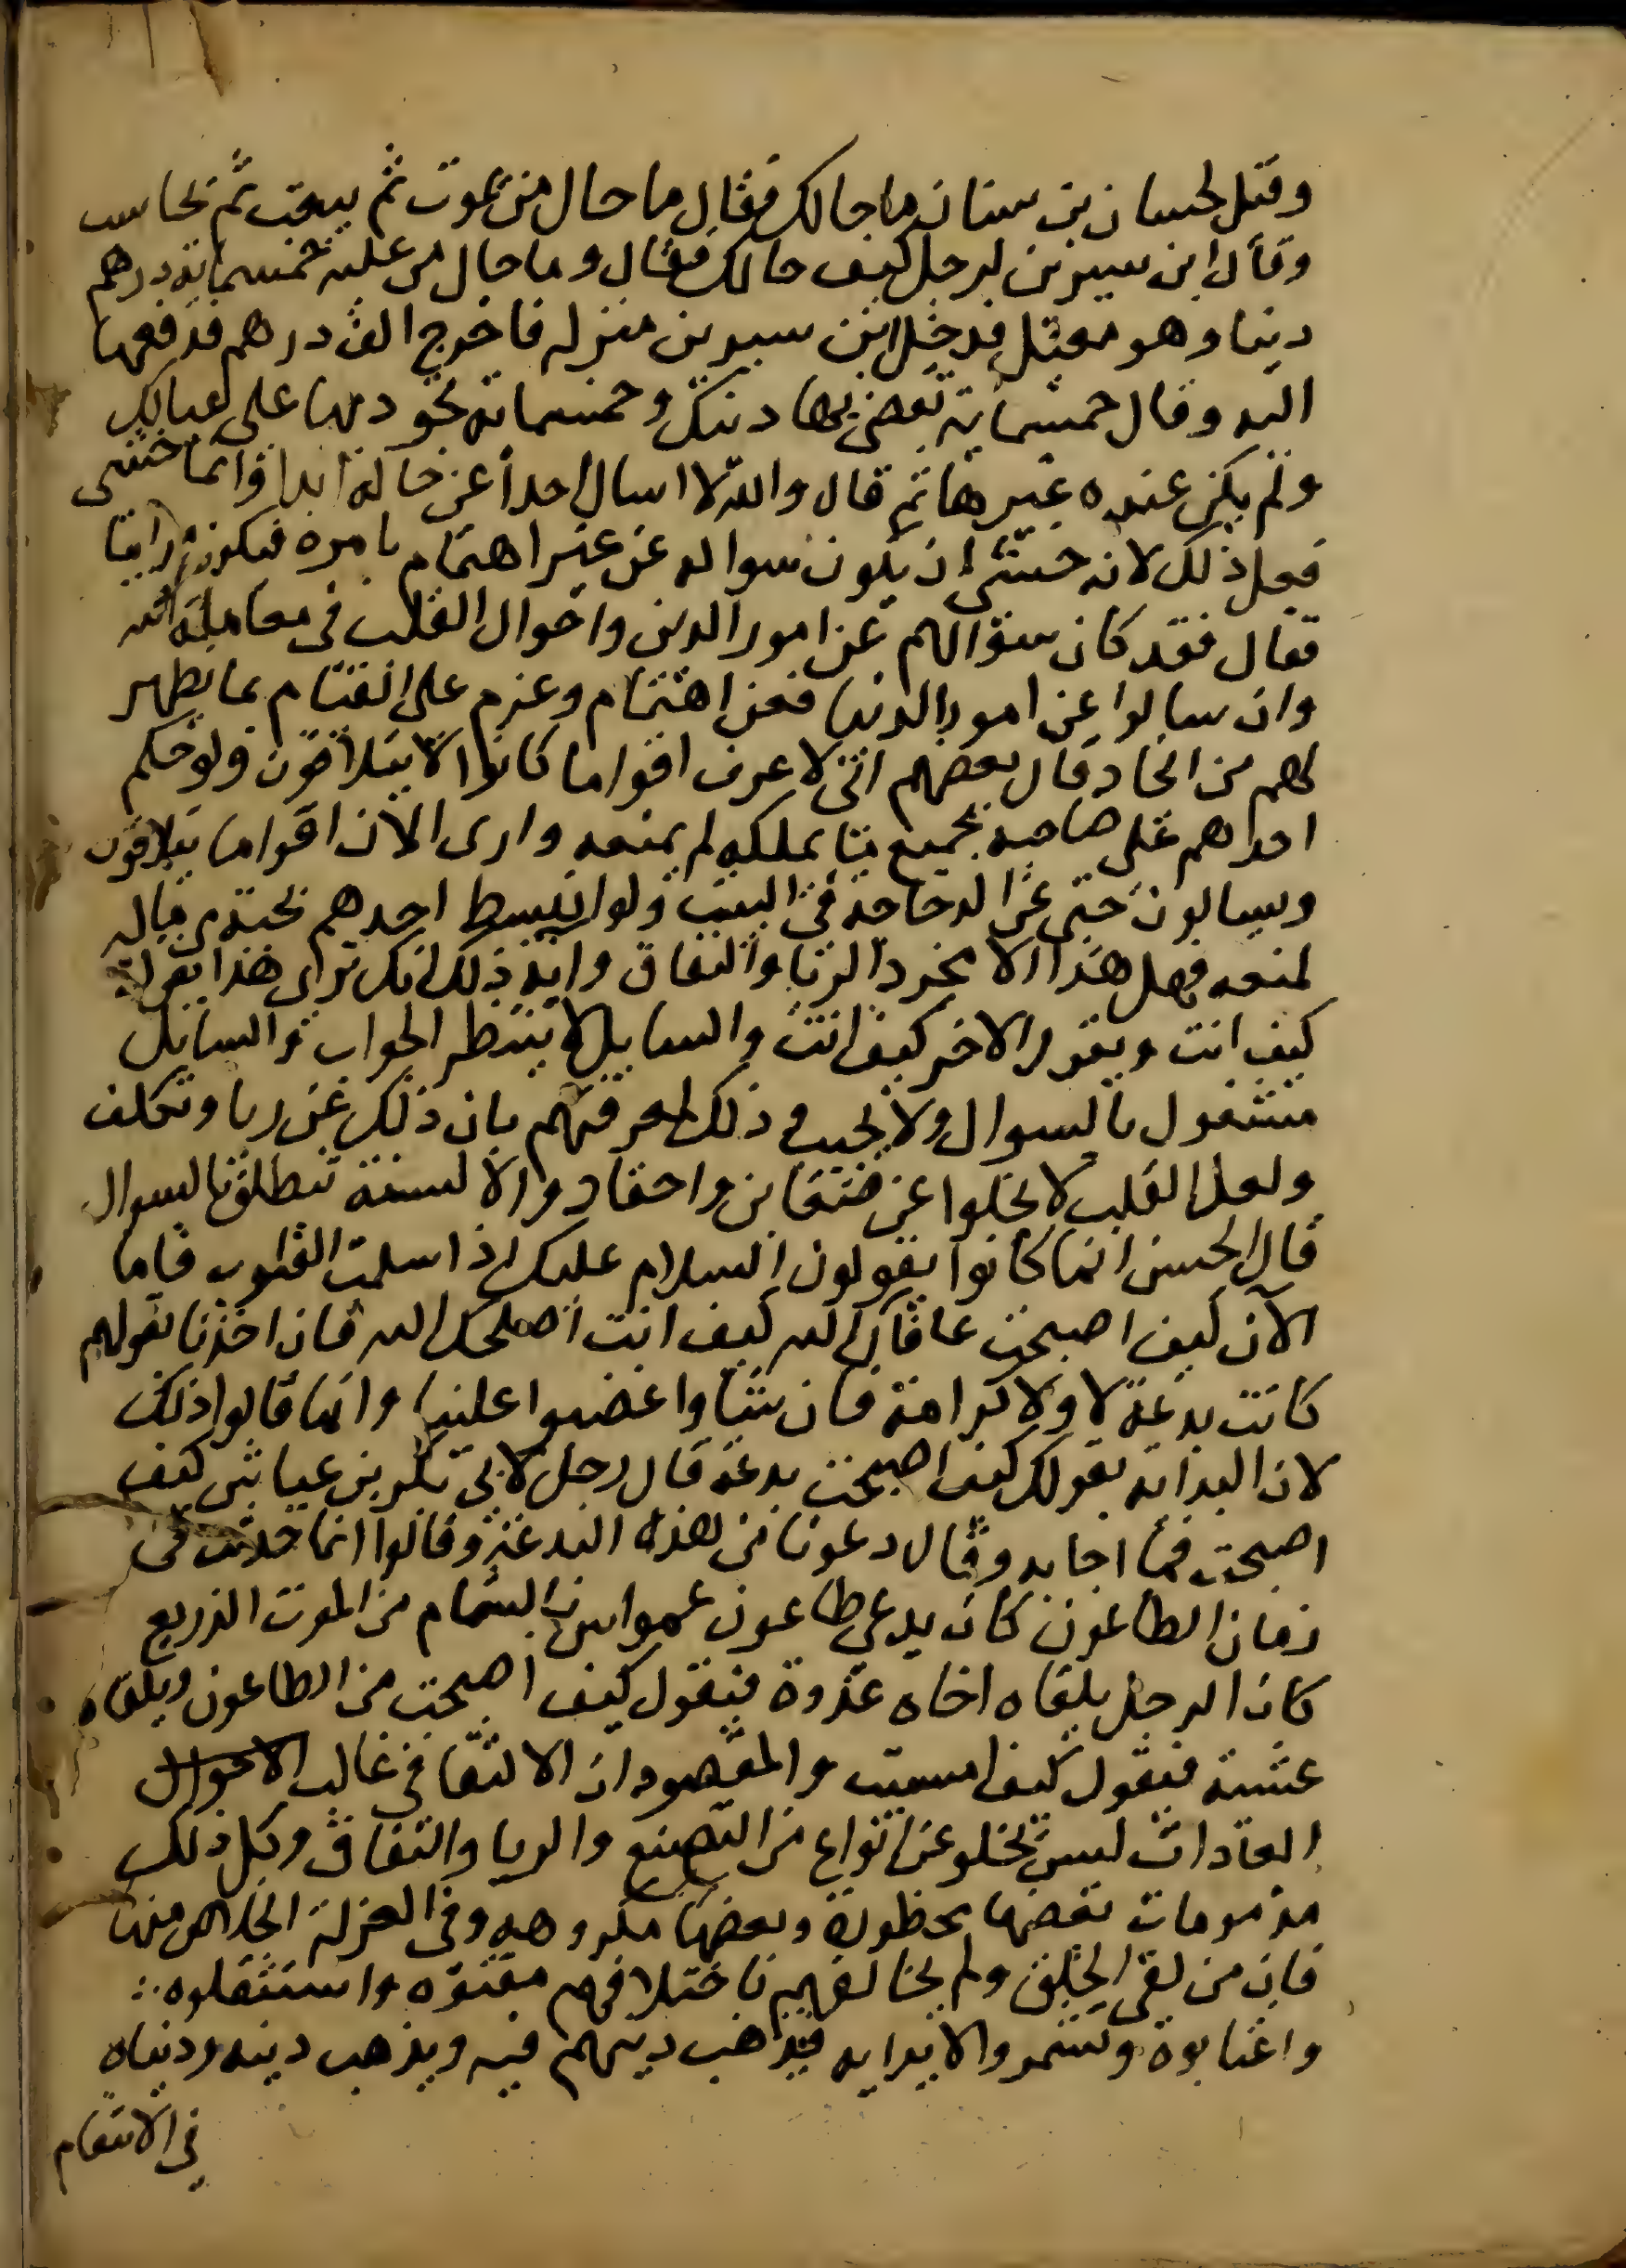 وقيل لحسان بن سنان ما حالك فقال ما حال من يموت ثم يبعث ثم يحاسب
وقال ابن سيرين لرجل كيف حالك فقال وما حال من عليه خمسمائة درهم
دينا وهو معيل فدخل ابن سيرين منزله فاخرج الف درهم فدفعها
اليه وقال خمسماية تقضى بها دينك وخمسمائة تجود بها على عيالك
ولم يكن عنده غيرها ثم قال والله لا اسال احدا عن حاله ابدا وانما خشى
فعل ذلك لانه خشى ان يكون سواله عن غير اهتمام بامره فيكون مرائيا
فقال فقد كان سؤالهم عن امور الدين واحوال القلب فى معاملة الله
وان سالوا عن امور الدنيا فعن اهتمام وعزم على القيام بما يظهر
لهم من الحا وقال بعضهم انى لاعرف اقواما كانوا لا يتلاقون ولو حكم
احدهم على صاحبه بجميع ما يملكه لم يمنعه وارى الآن اقواما يتلاقون
ويسالون حتى عن الدجاجة في البيت ولو انبسط احدهم بحبة من ماله
لمنعه فهل هذا الا مجرد الريا والنفاق واية ذلك انك ترى هذا يقول
كيف انت ويقول الاخر كيف انت والسايل لا ينتظر الجواب والسايل
مشغول بالسوال ولا يجيب وذلك لمعرفتهم بان ذلك عن ريا وتكلف
ولعل القلب لا يخلوا عن ضغاين واحقاد والالسنة تنطلق بالسوال
قال الحسن انما كانوا يقولون السلام عليك اذا سلمت القلوب فاما
الآن كيف اصبحت عافاك الله كيف انت اصلحك الله فان اخذنا بقولهم
كانت بدعة لا ولا كرامة فان شاوا غضبوا علينا وانما قالوا ذلك
لان البداية بقولك كيف اصبحت بدعة قال رجل لابي بكر بن عياش كيف
اصبحت فما اجابه وقال دعونا من هذه البدعة وقالوا انما حدثت في
زمان الطاعون كان يدعى طاعون عمواس بالشام من الموت الذريع
كان الرجل يلقاه اخاه غدوة فيقول كيف اصبحت من الطاعون ويلقاه
عشية فيقول كيف امسيت والمقصود ان الالتقا في غالب الاحوال
العادات ليس تخلو عن انواع من التصنع والريا والنفاق وكل ذلك
مذمومات بعضها محظورة وبعضها مكروهه وفى العزلة الخلاص منها
فان من لقى الخلق ولم يخالفهم باختلافهم مقتوه واستثقلوه
واغتابوه وتشمروا لايذايه فيذهب دينهم فيه ويذهب دينه ودنياه
في الانتقام